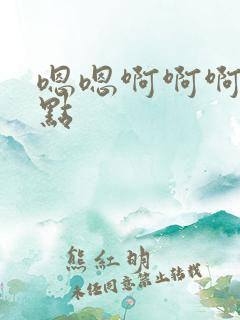 嗯嗯啊啊啊
點
熊紅明
未经同意禁止转载